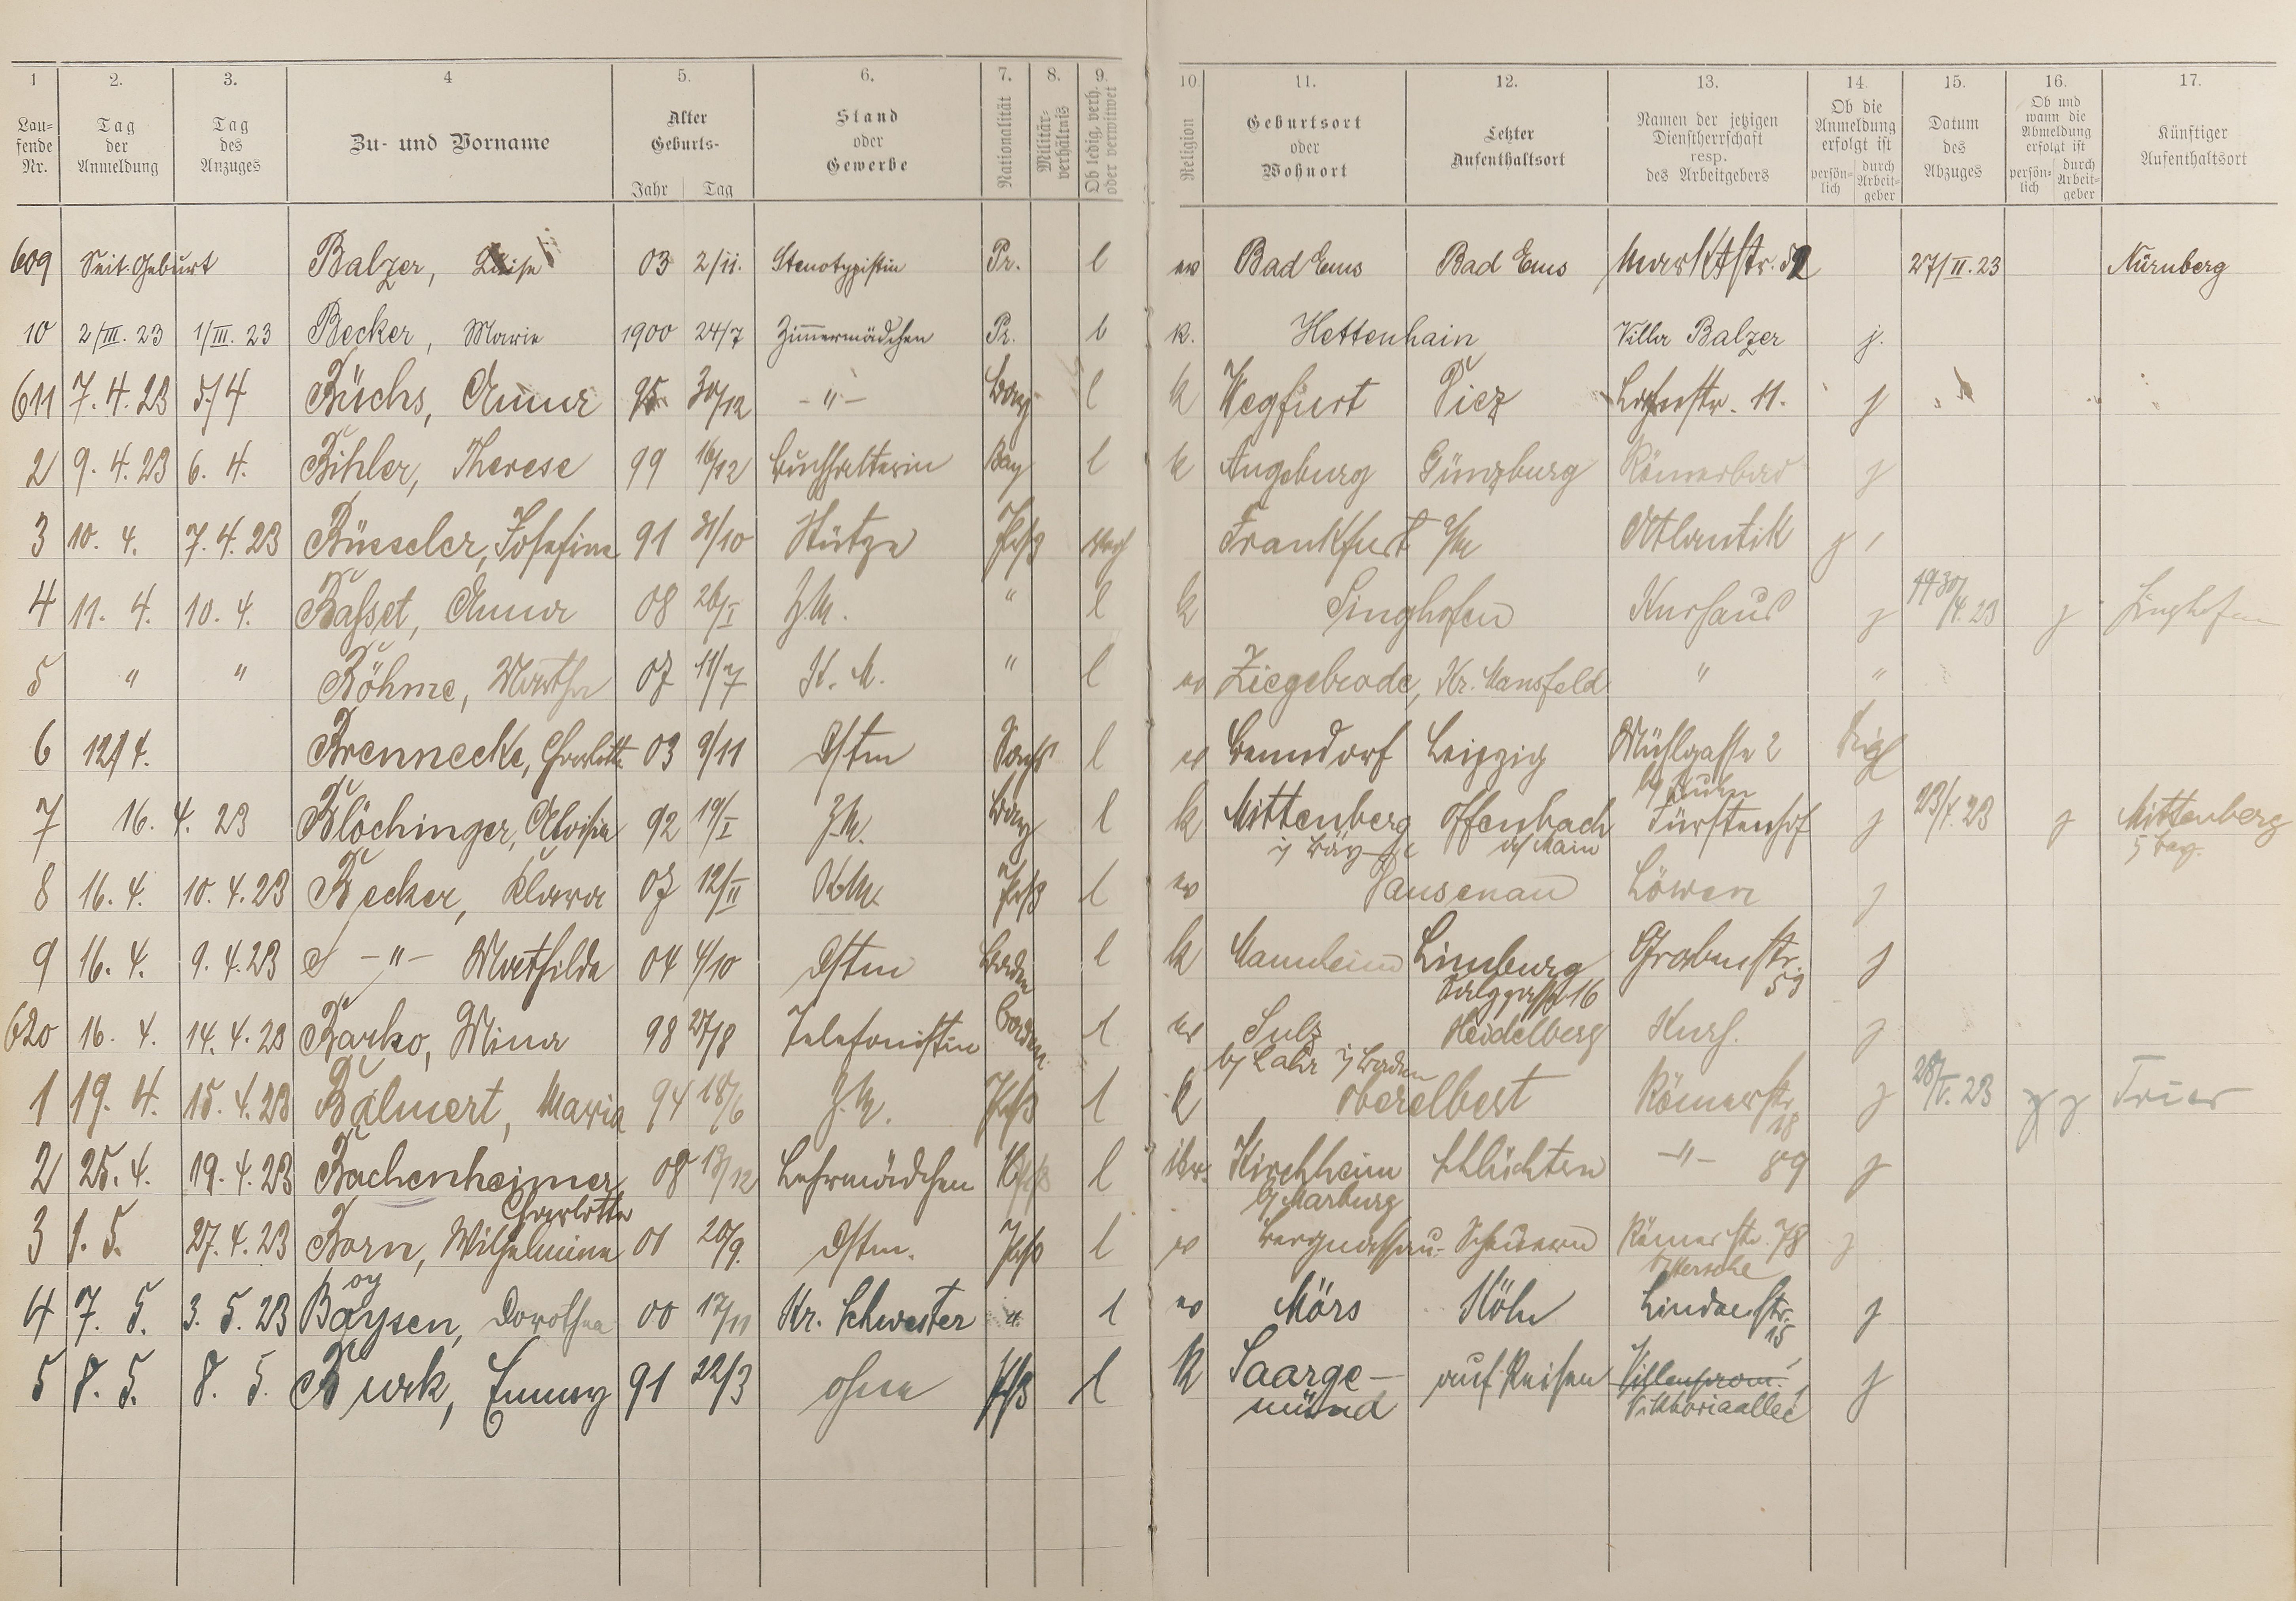 1 2. 3. 4 5. 6. 7. 8. 9. 10 11. 12. 13. 14. 15. 16. 17.
Laufende Nr. Tag der Anmeldung Tag des Anzuges Zu- und Vorname Alter Geburts- Jahr Tag Stand oder Gewerbe Nationalität Militärverhältnis Ob ledig, verh. oder verwitwet Religion Geburtsort oder Wohnort Letzter Aufenthaltsort Namen der jetzigen Dienstherrschaft resp. des Arbeitgebers Ob die Anmeldung erfolgt ist persönlich durch Arbeitgeber Datum des Abzuges Ob und wann die Abmeldung erfolgt ist persönlich durch Arbeitgeber Künftiger Aufenthaltsort
609 Seit Geburt Balzer, Luise 03 2/11. Stenotypistin Pr. l ev Bad Ems Bad Ems Marktstr. 27/II.23 Nürnberg
10 2/III.23 1/III.23 Becker, Marie 1900 24/7 Zimmermädchen Pr. l k. Hettenhain Villa Balzer j.
611 7.4.23 5/4 Büchs, Anna 95 30/12 -"- Bay l k Wegfurt Diez 11. j
2 9.4.23 6.4. Bihler, Therese 99 16/12 Buchhalterin Bay l k Augsburg Günzburg Römerbad j
3 10.4. 7.4.23 Büsseler, Josefine 91 31/10 Stütze Prß Frankfurt a/M Atlantik j
4 11.4. 10.4. Basset, Anna 08 26/I Z.M. " l k Singhofen Kurhaus j 30/4.23 j Singhofen
5 " " Böhme, Martha 07 11/7 K.M. " l ev Ziegelrode, Kr. Mansfeld " "
6 12/4. Brennecke, Charlotte 03 9/11 Dstm Sachs l ev Benndorf Leipzig Mühlgasse 2
7 16.4.23 Blöchinger, Aloisia 92 19/I Z.M. Bay l k Mittenberg Offenbach Fürstenhof j 23/4.23 j Mittenberg
i/ Bay a/ Main i/ Bay.
8 16.4. 10.4.23 Becker, Klara 07 12/II Prß l ev Dausenau Löwen j
9 16.4. 9.4.23 -"- Mathilda 04 4/10 Dstm Baden l k Mannheim Limburg Grabenstr. 53 j
Salzgasse 16
620 16.4. 14.4.23 Barko, Mina 98 27/8 Telefonistin Baden l ev Sulz Heidelberg Kurh. j
b/ Lahr i/ Baden
1 19.4. 15.4.23 Balmert, Maria 94 18/6 Z.M. Prß l k Oberelbert Römerstr. 18 j 28/V.23 j j Trier
2 25.4. 19.4.23 Bachenheimer 08 13/12 Lehrmädchen Prß l isr. Kirchheim Schlüchtern -"- 89 j
Charlotte b/ Marburg
3 1.5. 27.4.23 Born, Wilhelmine 01 20/9. Dstm. Prß l ev Bergnassau-Scheuern Römerstr. 78 j
4 7.5. 3.5.23 Baysen, Dorothea 00 17/11 Kr. Schwester " l ev Mörs Köln Lindenstr. 15 j
5 8.5. 8.5. Burk, Emmy 91 22/3 ohne Prß l k Saarge- auf Reisen Villenprom. j
münd Viktoriaallee 1